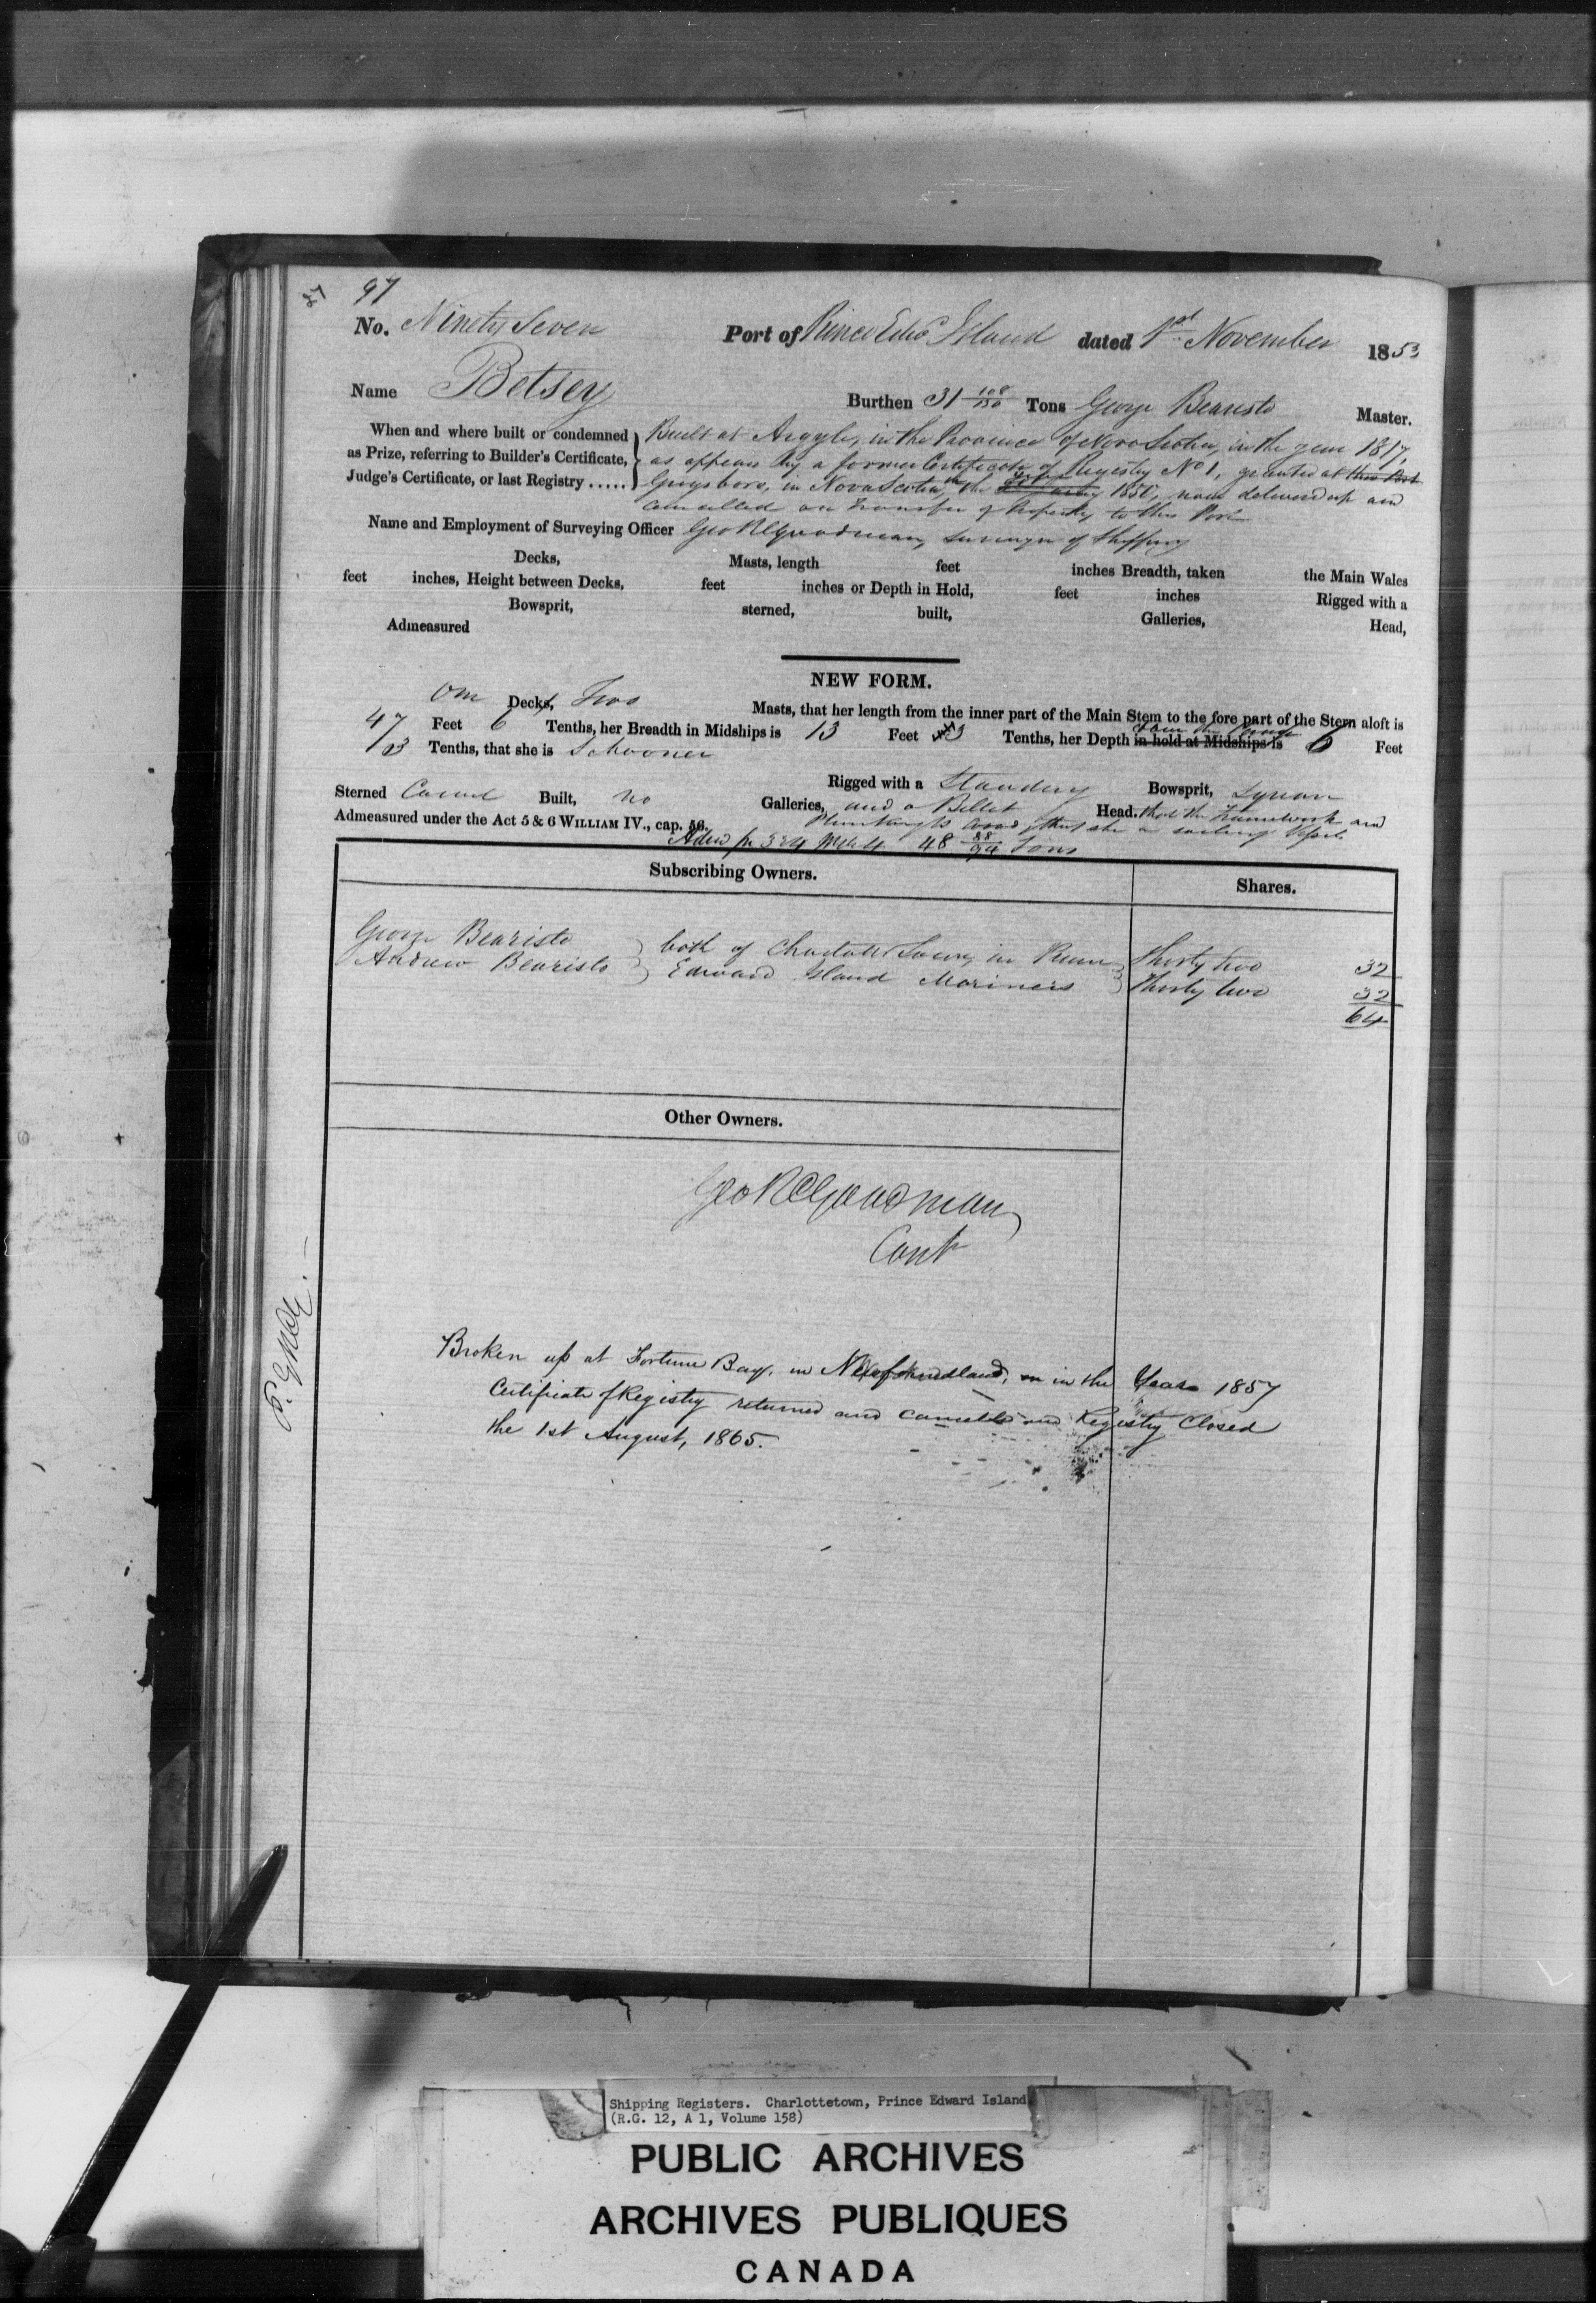 27 97
No. Ninety Seven Port of Prince Edwd Island dated 1st November 1853
Name Betsey Burthen 31 108/130 Tons George Bearisto Master.
When and where built or condemned as Prize, referring to Builder's Certificate, Judge's Certificate, or last Registry .....
Built at Argyle, in the Province of Nova Scotia, in the year 1817,
as appears by a former Certificate of Registry No 1, granted at this Port
Guysboro, in Nova Scotia, the 1850, now delivered up and
Cancelled on Transfer of Property to this Port
Name and Employment of Surveying Officer Geo R Goodman, Surveyor of Shipping
Decks, Masts, length feet inches Breadth, taken the Main Wales
feet inches, Height between Decks, feet inches or Depth in Hold, feet inches Rigged with a
Bowsprit, sterned, built, Galleries, Head,
Admeasured
NEW FORM.
One Decks, Two Masts, that her length from the inner part of the Main Stem to the fore part of the Stern aloft is
47 Feet 6 Tenths, her Breadth in Midships is 13 Feet 3 Tenths, her Depth in hold at Midships is 6 Feet
3 Tenths, that she is Schooner
Rigged with a Standing Bowsprit, Square
Sterned Carvel Built, no Galleries, and a Billet Head. that the Framework and
Admeasured under the Act 5 & 6 WILLIAM IV., cap. 56. Planking is Wood, that she is a sailing Vessel
48 88/94 Tons
Subscribing Owners. Shares.
George Bearisto both of Charlotte Town, in Prince Thirty two 32
Andrew Bearisto Edward Island Mariners Thirty two 32
64
Other Owners.
Geo R Goodman
Cont
Broken up at Fortune Bay, in Newfoundland, in the Year 1857
Certificate of Registry returned and cancelled and Registry Closed
the 1st August, 1865.
Shipping Registers. Charlottetown, Prince Edward Island
(R.G. 12, A 1, Volume 158)
PUBLIC ARCHIVES
ARCHIVES PUBLIQUES
CANADA